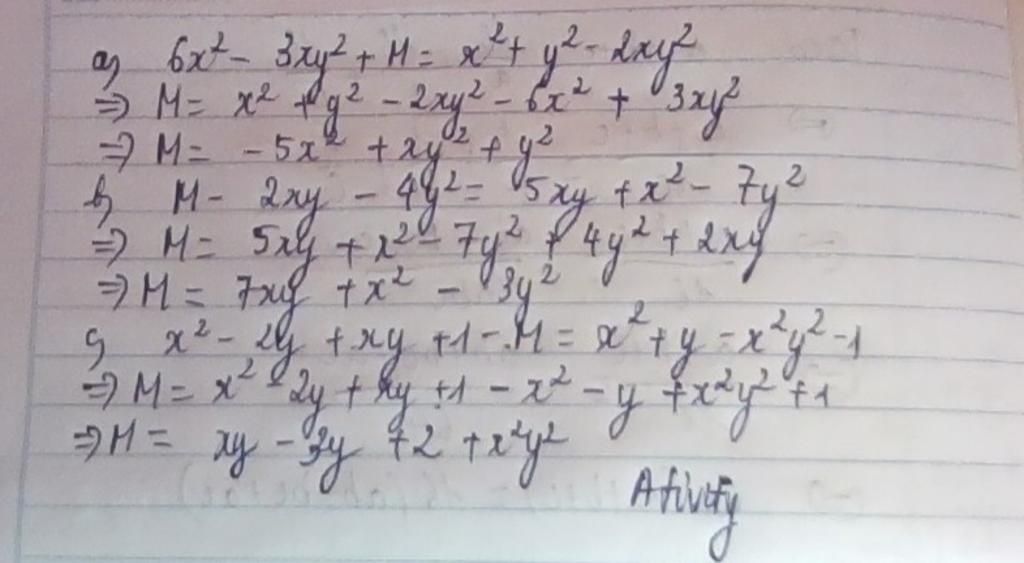 a) 6x² - 3xy² + M = x² + y² - 2xy²
=> M = x² + y² - 2xy² - 6x² + 3xy²
=> M = -5x² + xy² + y²
b) M - 2xy - 4y² = 5xy + x² - 7y²
=> M = 5xy + x² - 7y² + 4y² + 2xy
=> M = 7xy + x² - 3y²
c) x² - 2y + xy + 1 - M = x² + y - x²y² - 1
=> M = x² - 2y + xy + 1 - x² - y + x²y² + 1
=> M = xy - 3y + 2 + x²y²